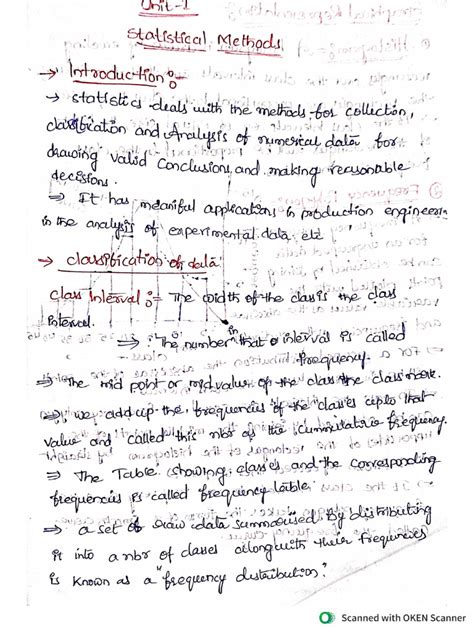 Unit-1
Statistical Methods
→ Introduction :
→ statistics deals with the methods for collection,
classification and Analysis of numerical data for
drawing valid conclusions and making reasonable
decisions.
⇒ It has meaniful applications in production engineerin
in the analysis of experimental data, etc
→ classification of data
class interval :- The width of the class is the class
interval.
⇒ The number that interval is called
frequency.
⇒ The mid point or mid value of the class the class mark.
⇒ we add up the frequencies of the classes upto that
value and called this nbr as the cummulative frequency.
⇒ The Table showing classes and the corresponding
frequencies is called frequency table.
⇒ a set of raw data summarised By distributing
it into a nbr of classes alongwith their frequencies
is known as a "frequency distribution".
Scanned with OKEN Scanner